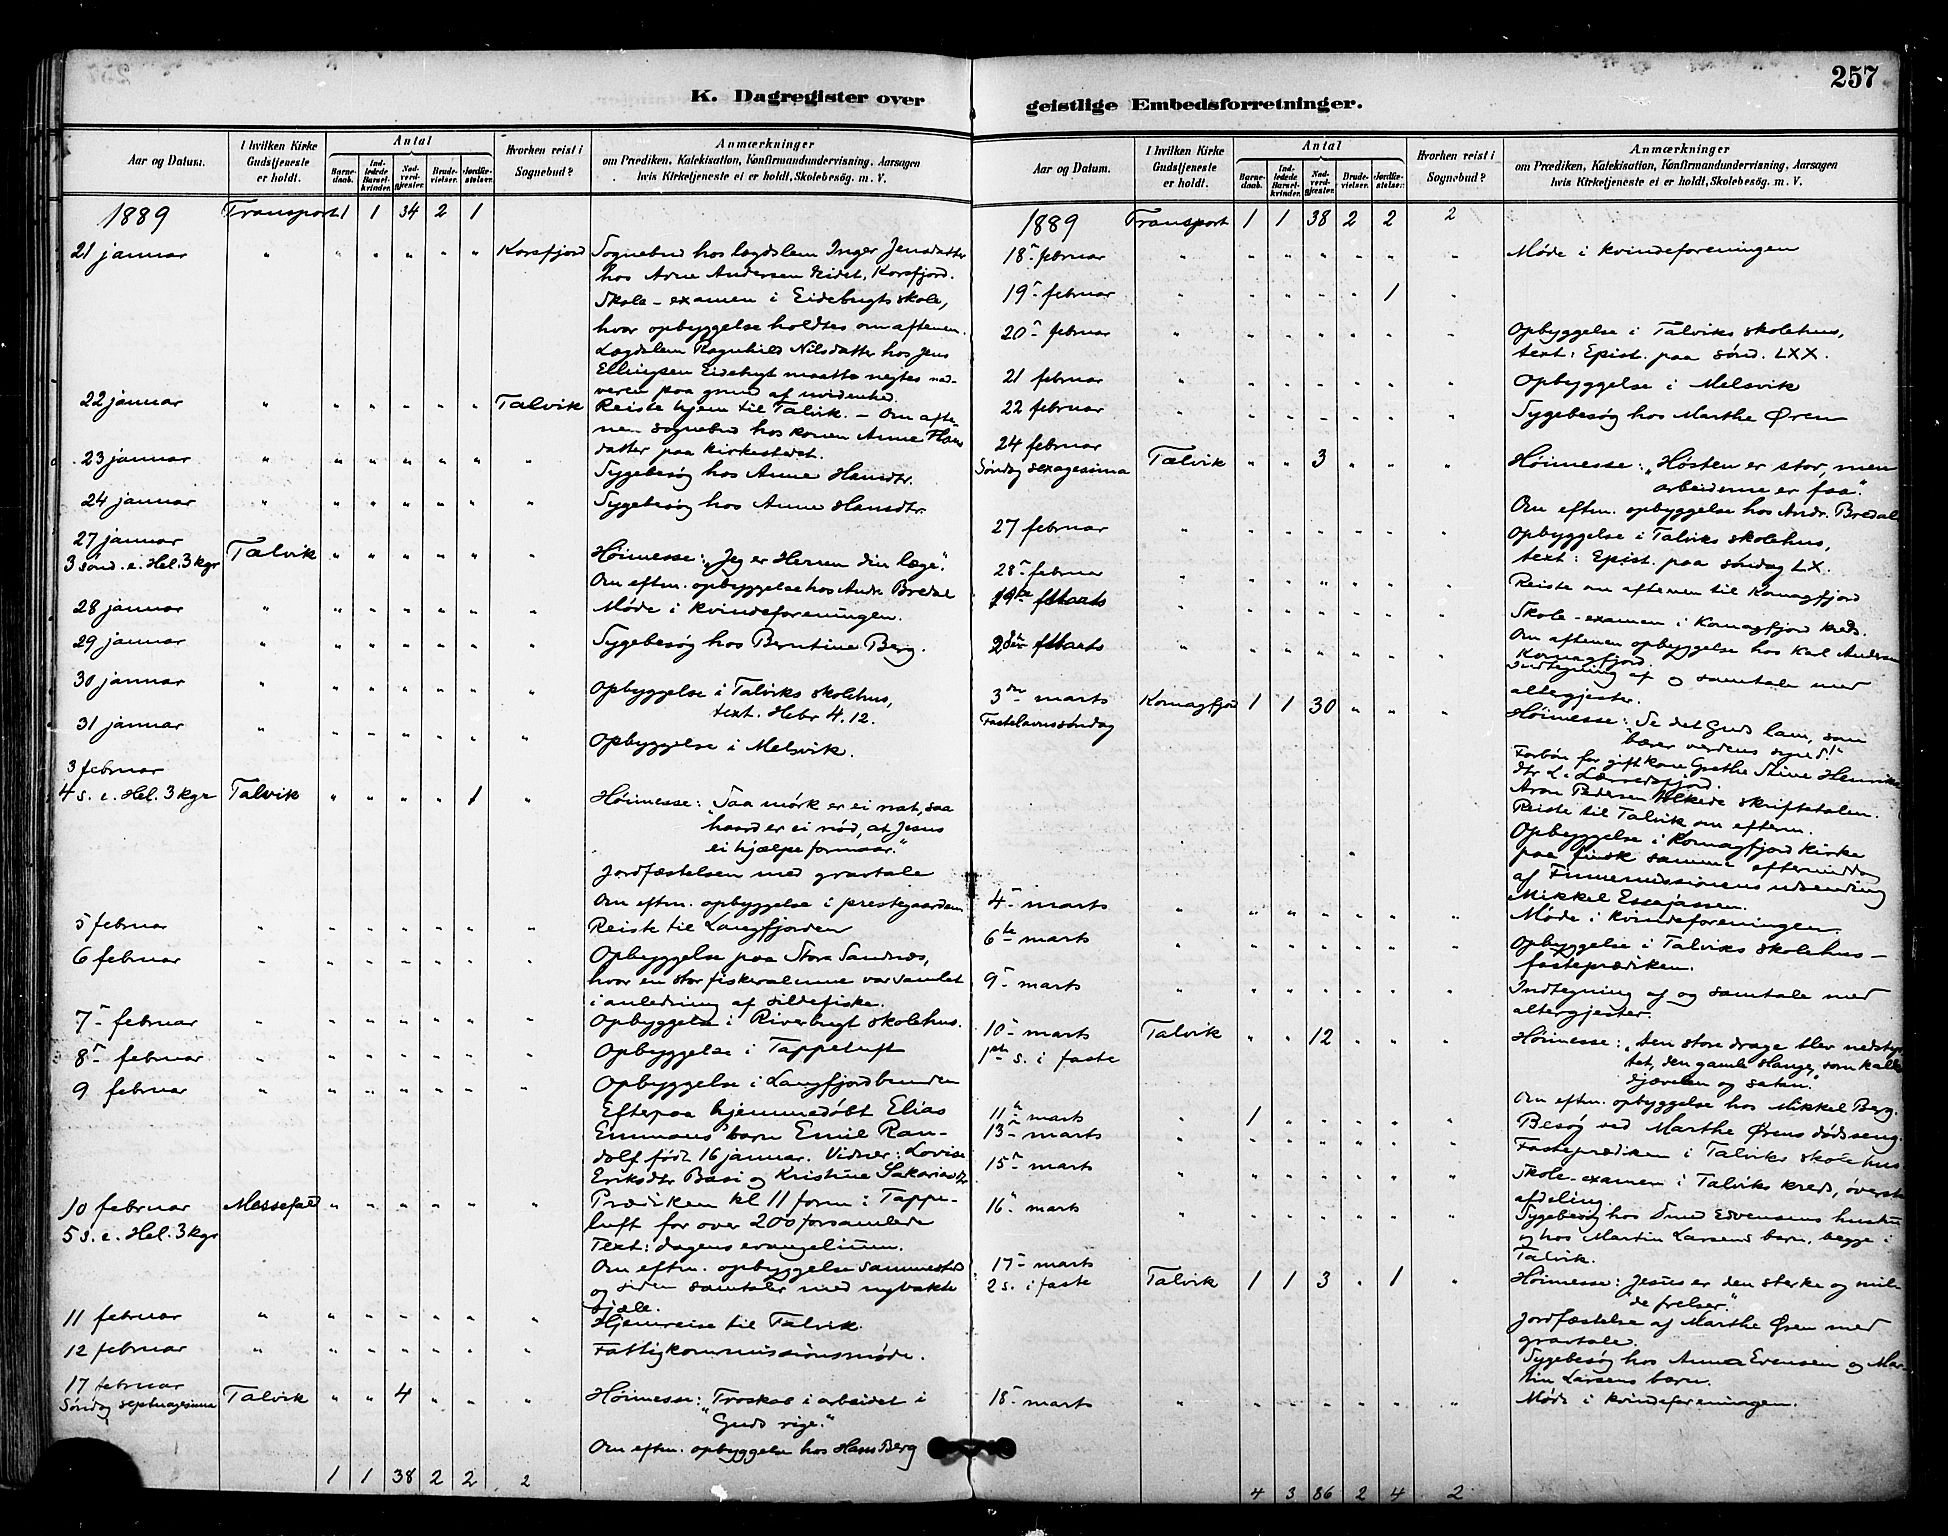 257
K. Dagregister over
geistlige Embedsforretninger.
Aar og Datum.
I hvilken Kirke Gudstjeneste er holdt.
Antal
Barnedaab.
Indledede Barselkvinder.
Nadverdgjester.
Brudevielser.
Jordfæstelser.
Hvorhen reist i Sognebud?
Anmærkninger
om Prædiken, Katekisation, Konfirmandundervisning, Aarsagen
hvis Kirketjeneste ei er holdt, Skolebesøg. m. V.
1889 Transport 1 1 34 2 1
21 januar " " " " " " Korsfjord Sognebud hos lægdslem Inger Jensdatter
hos Arne Andersen Korsfjord.
Skole-examen i Eidebugt skole,
hvor opbyggelse holdtes om aftenen.
Lægdslem Ragnhild Nilsdatter hos Jens
Ellingsen Eidebugt maatte negtes nad-
veren paa grund af uvidenhed.
22 januar " " " " " " Talvik Reiste hjem til Talvik. – Om afte-
nen sognebud hos konen Anne Hans
datter paa kirkestedet.
23 januar " " " " " " " Sygebesøg hos Anne Hansdtr.
24 januar " " " " " " " Sygebesøg hos Anne Hansdtr.
27 januar
3 sønd. e. Hel. 3 kgr Talvik " " " " " " Høimesse: „Jeg er Herren din læge".
Om eftm. opbyggelse hos Andr. Bredal
28 januar " " " " " " " Møde i kvindeforeningen.
29 januar " " " " " " " Sygebesøg hos Berntine Berg.
30 januar " " " " " " " Opbyggelse i Talviks skolehus,
text. Hebr 4.12.
31 januar " " " " " " " Opbyggelse i Melsvik.
3 februar
4 s. e. Hel. 3 kgr Talvik " " " " 1 " Høimesse: „Saa mørk er ei nat, saa
haard er ei nød, at Jesus
ei hjælpe formaar."
Jordfæstelsen med gravtale
Om eftm. opbyggelse i prestegaarden
5 februar " " " " " " " Reiste til Langfjorden
6 februar " " " " " " " Opbyggelse paa Stora Sandnæs,
hvor en stor fiskeralmue var samlet
i anledning af sildefiske.
7- februar " " " " " " " Opbyggelse i Riverbugt skolehus.
8- februar " " " " " " " Opbyggelse i Tappeluft
9 februar " " " " " " " Opbyggelse i Langfjordbunden
Efterpaa hjemmedøbt Elias
Emmaus' barn Emil Ran-
dolf født 16 januar. Vidner: Lovise
Eriksdtr Basi og Kristine Sakariasdtr
10 februar Messefald " " " " " " Prædiken kl 11 form i Tappe-
5 s. e. Hel. 3 kgr luft for over 200 forsamlede
Text: dagens evangelium.
Om eftm. opbyggelse sammesteds
og siden samtaler med nyvakte
sjæle.
11 februar " " " " " " " Hjemreise til Talvik.
12 februar " " " " " " " Fattigkommissionsmøde.
17 februar
Søndag septuagesima Talvik " " 4 " " " Høimesse: „Troskab i arbeidet i
Guds rige."
Om eftm. opbyggelse hos Hans Berg
1 1 38 2 2 2
Aar og Datum.
I hvilken Kirke Gudstjeneste er holdt.
Antal
Barnedaab.
Indledede Barselkvinder.
Nadverdgjester.
Brudevielser.
Jordfæstelser.
Hvorhen reist i Sognebud?
Anmærkninger
om Prædiken, Katekisation, Konfirmandundervisning, Aarsagen
hvis Kirketjeneste ei er holdt, Skolebesøg. m. V.
1889 Transport 1 1 38 2 2 2
18- februar " " " " " " " Møde i kvindeforeningen
19- februar " " " " " 1 "
20- februar " " " " " " " Opbyggelse i Talviks skolehus,
text: Epist. paa sønd. LXX.
21 februar " " " " " " " Opbyggelse i Melsvik
22 februar " " " " " " " Sygebesøg hos Marthe Øren
24 februar
Søndag sexagesima Talvik " " 3 " " " Høimesse: „Høsten er stor, men
arbeiderne er faa".
Om eftm. opbyggelse hos Andr. Bredal
27 februar " " " " " " " Opbyggelse i Talviks skolehus,
text: Epist. paa søndag LX.
28- februar " " " " " " " Reiste om aftenen til Komagfjord
1ste Marts " " " " " " " Skole-examen i Komagfjord kreds.
Om aftenen opbyggelse hos Karl Andersen
Komagfjord.
2den Marts " " " " " " " Indtegning af og samtale med
altergjester.
3die marts Komagfjord 1 1 30 " " " Høimesse: „Se det Guds lam, som
Fastelavnssøndag bærer verdens synd!"
Forbøn for gift kone Grethe Stine Henriks
dtr L. Lærredsfjord.
Aron Pedersen tolkede skriftetalen.
Reiste til Talvik om efterm.
Opbyggelse i Komagfjord kirke
paa finsk samme eftermiddag
af Finnemissionens udsending
Mikkel Essejassen.
4- marts " " " " " " " Møde i kvindeforeningen.
6te marts " " " " " " " Opbyggelse i Talviks skolehus –
fasteprædiken.
9- marts " " " " " " " Indtegning af og samtale med
altergjester.
10- marts Talvik " " 12 " " " Høimesse: „Den store drage blev nedstyr-
1ste s. i faste tet, den gamle slange, som kaldes
djævelen og satan."
Om eftm. opbyggelse hos Mikkel Berg.
11te marts " 1 " " " " " Besøg ved Marthe Ørens dødsseng.
13- marts " " " " " " " Fasteprædiken i Talviks skolehus.
15- marts " " " " " " " Skole-examen i Talviks kreds, øverste
afdeling.
16- marts " " " " " " " Sygebesøg hos Smed Evensens hustru
og hos Martin Larsens barn, begge i
Talvik.
17- marts
2 s. i faste Talvik 1 1 3 " 1 " Høimesse: „Jesus er den sterke og mil-
de frelser."
Jordfæstelse af Marthe Øren med
gravtale.
Sygebesøg hos Anna Evensen og Mar-
tin Larsens barn.
18- marts " " " " " " " Møde i kvindeforeningen.
4 3 86 2 4 2